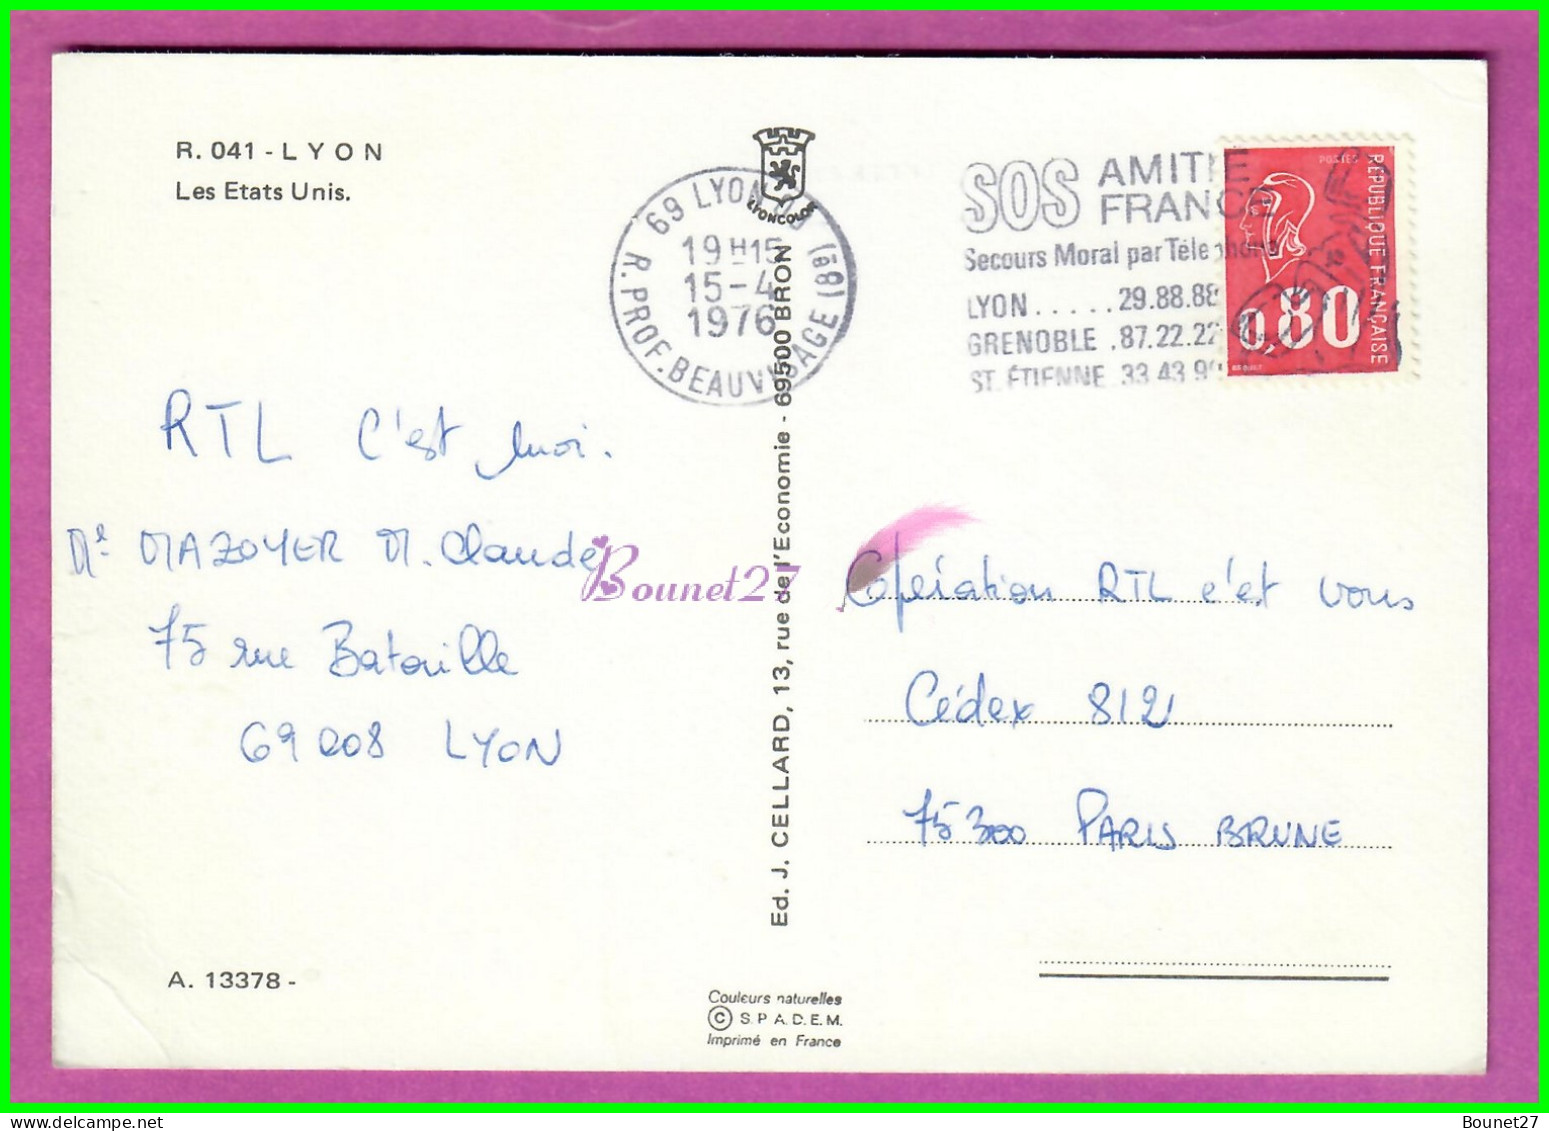 R. 041 - LYON
Les Etats Unis.
LYONCOLOR
69 LYON
19H15
15-4
1976
R. PROF. BEAUVISAGE (8è)
SOS AMITIE
FRANCE
Secours Moral par Téléphone
LYON.....29.88.88
GRENOBLE .87.22.22
ST. ÉTIENNE 33 43 9
POSTES
REPUBLIQUE FRANÇAISE
0,80
RTL C'est moi.
Me MAZOYER M. Claude
75 rue Bataille
69008 LYON
Bounet27
Opération RTL c'est vous
Cédex 812
75300 PARIS BRUNE
Ed. J. CELLARD, 13, rue de l'Economie - 69500 BRON
A. 13378 -
Couleurs naturelles
© S.P.A.D.E.M.
Imprimé en France
Bounet27